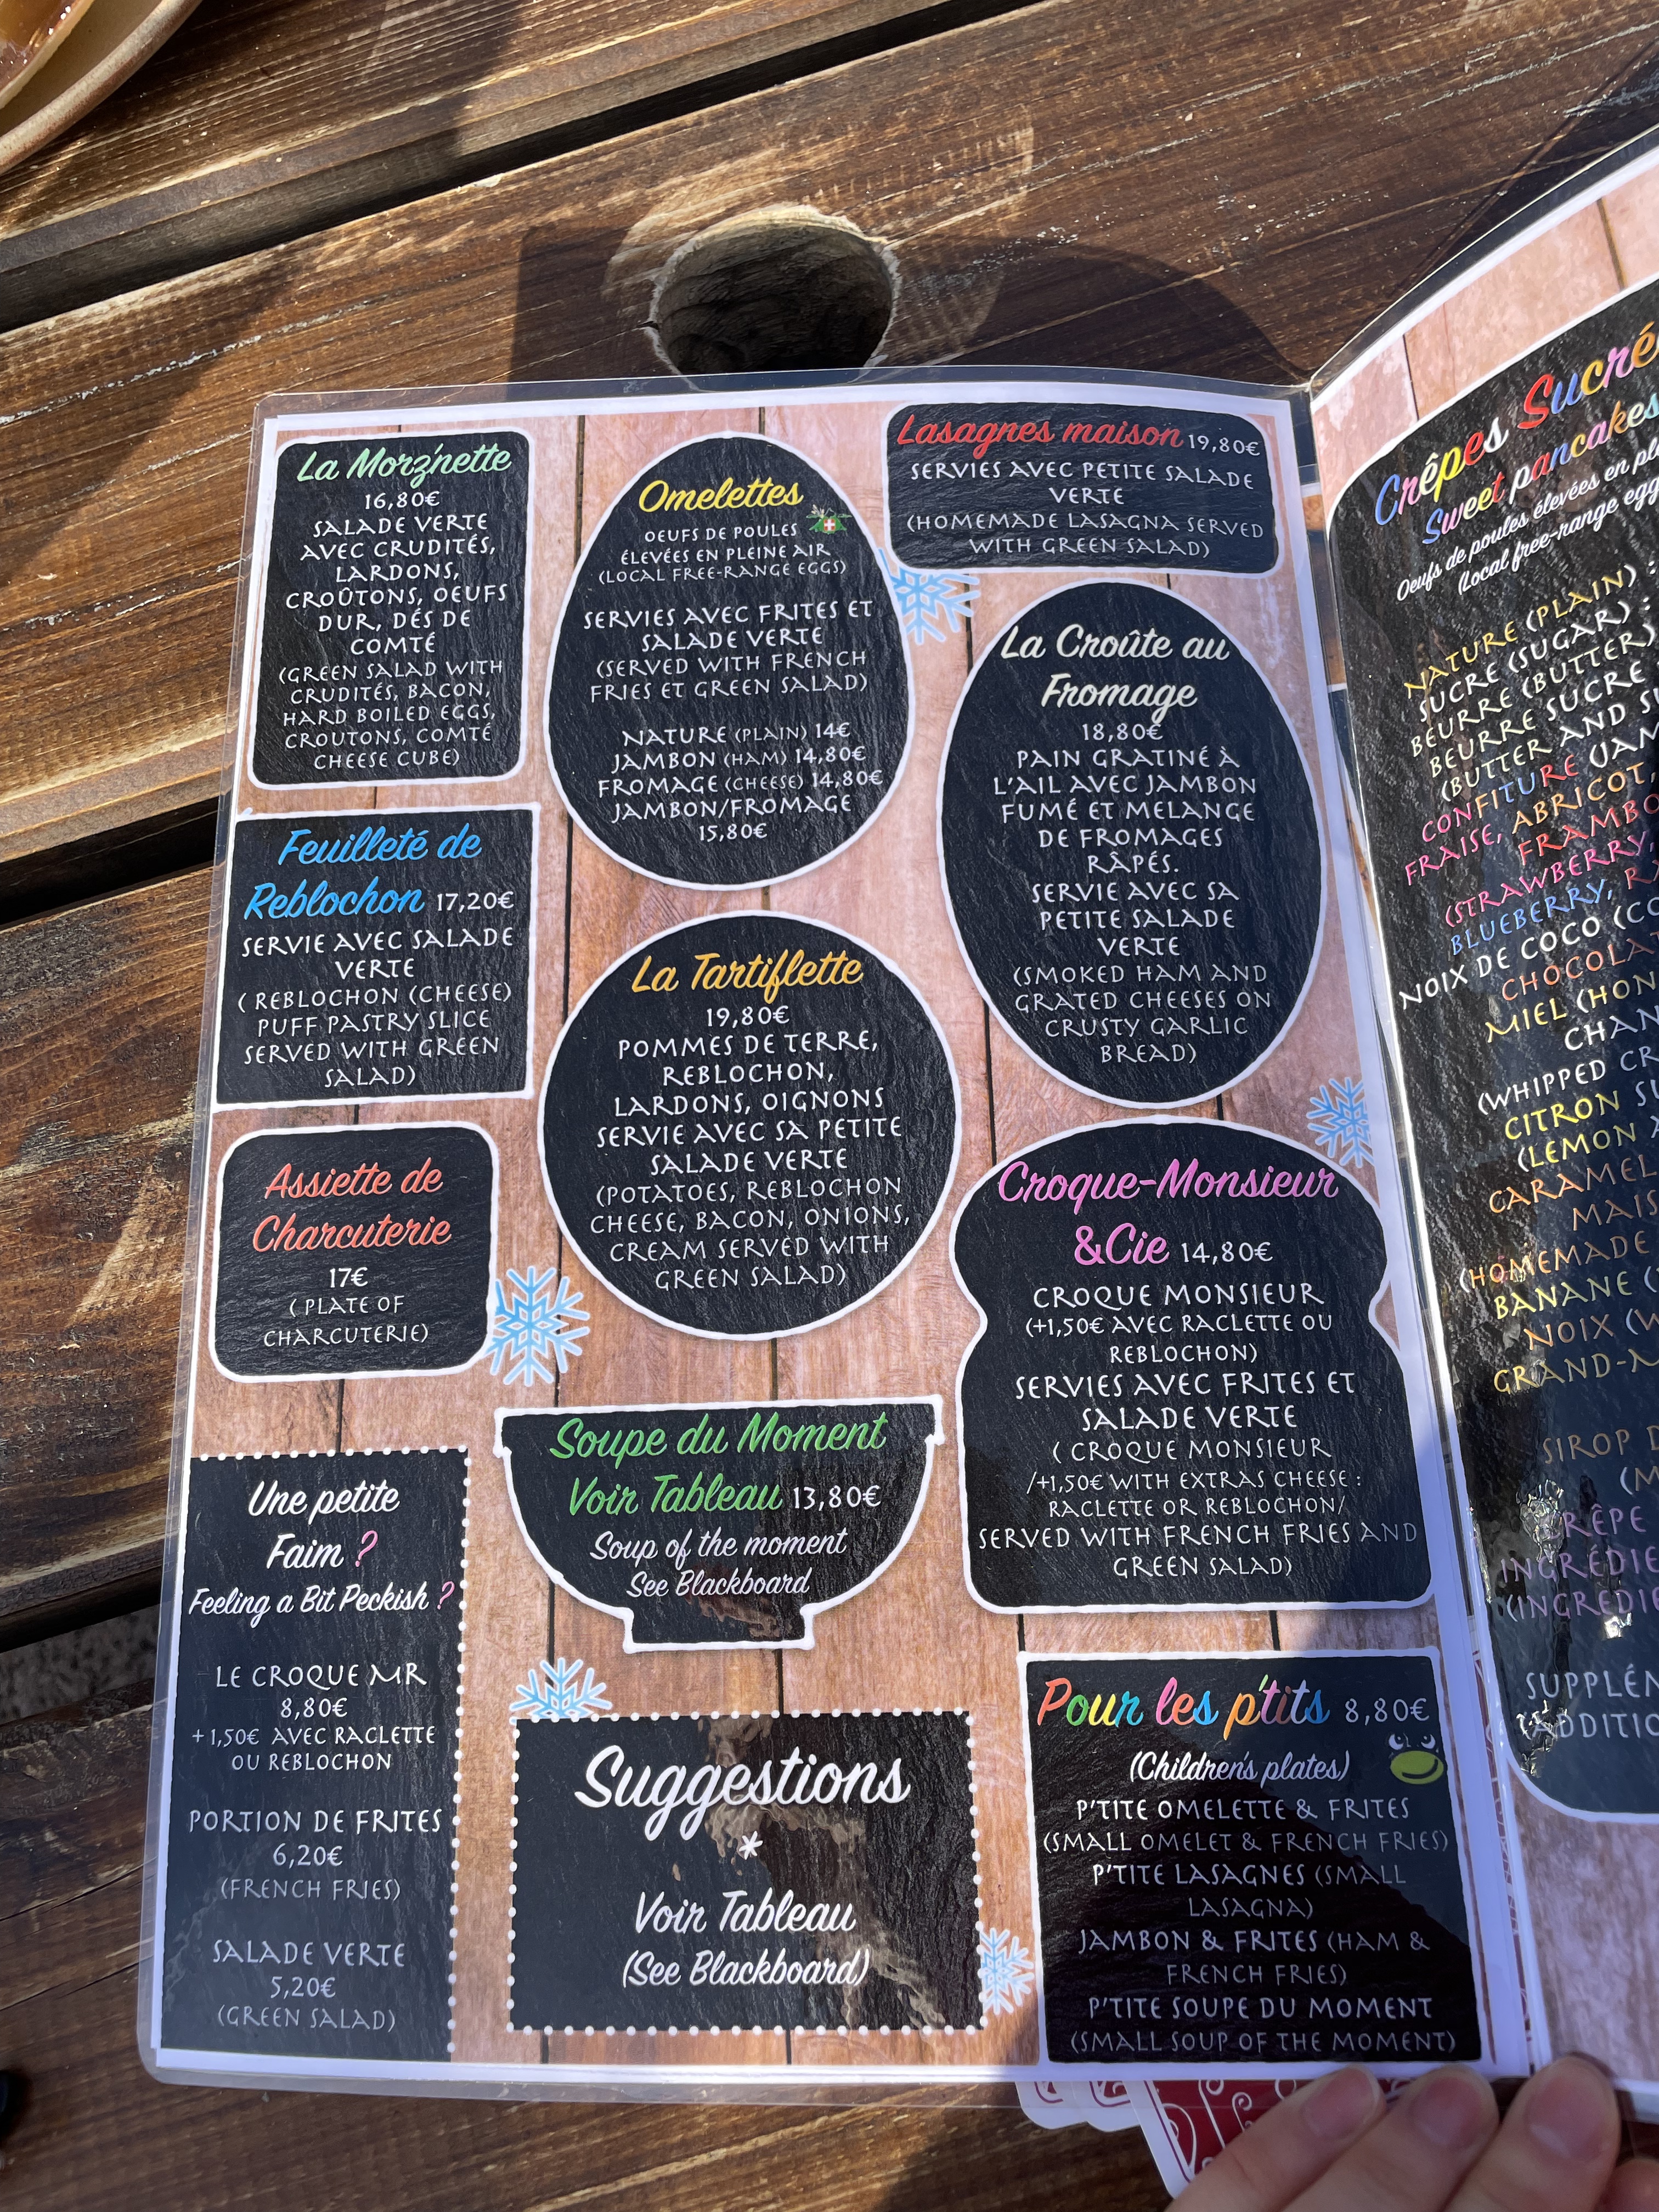 La Morz'nette
16,80€
SALADE VERTE
AVEC CRUDITÉS,
LARDONS,
CROÛTONS, OEUFS
DUR, DÉS DE
COMTÉ
(GREEN SALAD WITH
CRUDITÉS, BACON,
HARD BOILED EGGS,
CROUTONS, COMTÉ
CHEESE CUBE)
Feuilleté de
Reblochon 17,20€
SERVIE AVEC SALADE
VERTE
( REBLOCHON (CHEESE)
PUFF PASTRY SLICE
SERVED WITH GREEN
SALAD)
Assiette de
Charcuterie
17€
( PLATE OF
CHARCUTERIE)
Une petite
Faim ?
Feeling a Bit Peckish ?
LE CROQUE MR
8,80€
+1,50€ AVEC RACLETTE
OU REBLOCHON
PORTION DE FRITES
6,20€
(FRENCH FRIES)
SALADE VERTE
5,20€
(GREEN SALAD)
Omelettes
OEUFS DE POULES
ÉLEVÉES EN PLEINE AIR
(LOCAL FREE-RANGE EGGS)
SERVIES AVEC FRITES ET
SALADE VERTE
(SERVED WITH FRENCH
FRIES ET GREEN SALAD)
NATURE (PLAIN) 14€
JAMBON (HAM) 14,80€
FROMAGE (CHEESE) 14,80€
JAMBON/FROMAGE
15,80€
La Tartiflette
19,80€
POMMES DE TERRE,
REBLOCHON,
LARDONS, OIGNONS
SERVIE AVEC SA PETITE
SALADE VERTE
(POTATOES, REBLOCHON
CHEESE, BACON, ONIONS,
CREAM SERVED WITH
GREEN SALAD)
Soupe du Moment
Voir Tableau 13,80€
Soup of the moment
See Blackboard
Suggestions
*
Voir Tableau
(See Blackboard)
Lasagnes maison 19,80€
SERVIES AVEC PETITE SALADE
VERTE
(HOMEMADE LASAGNA SERVED
WITH GREEN SALAD)
La Croûte au
Fromage
18,80€
PAIN GRATINÉ À
L'AIL AVEC JAMBON
FUMÉ ET MELANGE
DE FROMAGES
RÂPÉS.
SERVIE AVEC SA
PETITE SALADE
VERTE
(SMOKED HAM AND
GRATED CHEESES ON
CRUSTY GARLIC
BREAD)
Croque-Monsieur
&Cie 14,80€
CROQUE MONSIEUR
(+1,50€ AVEC RACLETTE OU
REBLOCHON)
SERVIES AVEC FRITES ET
SALADE VERTE
( CROQUE MONSIEUR
/+1,50€ WITH EXTRAS CHEESE :
RACLETTE OR REBLOCHON/
SERVED WITH FRENCH FRIES AND
GREEN SALAD)
Pour les p'tits 8,80€
(Children's plates)
P'TITE OMELETTE & FRITES
(SMALL OMELET & FRENCH FRIES)
P'TITE LASAGNES (SMALL
LASAGNA)
JAMBON & FRITES (HAM &
FRENCH FRIES)
P'TITE SOUPE DU MOMENT
(SMALL SOUP OF THE MOMENT)
Crêpes Sucré
Sweet pancakes
Oeufs de poules élevées en
(local free-range
NATURE (PLAIN) :
SUCRE (SUGAR) :
BEURRE (BUTTER)
BEURRE SUCRE
(BUTTER AND
CONFITURE
FRAISE, ABRICOT,
(STRAWBERRY,
BLUEBERRY,
NOIX DE COCO
MIEL
(WHIPPED
CITRON
(LEMON
CARAMEL
(HOMEMADE
BANANE
NOIX
SIROP